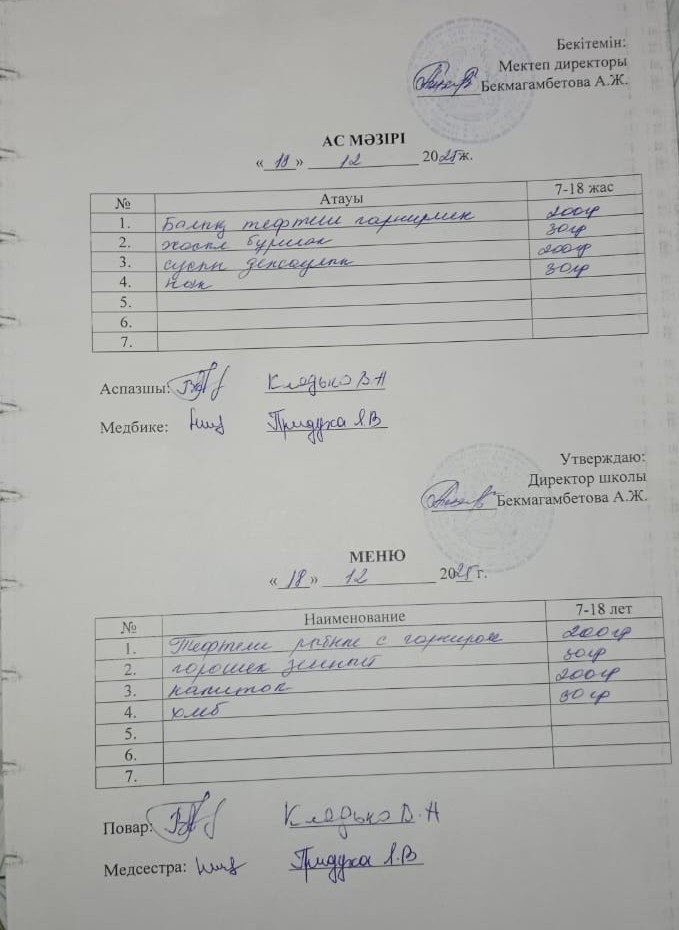 Бекітемін:
Мектеп директоры
Бекмагамбетова А.Ж.
АС МӘЗІРІ
« 18 » 12 2025ж.
№ Атауы 7-18 жас
1. Балық тефтели гарнирмен 200гр
2. жасыл бұршақ 30гр
3. сусын 200гр
4. Нан 30гр
5.
6.
7.
Аспазшы: Кладько В А
Медбике: Придуха Я.В
Утверждаю:
Директор школы
Бекмагамбетова А.Ж.
МЕНЮ
« 18 » 12 2025 г.
№ Наименование 7-18 лет
1. Тефтели рыбные с гарниром 200гр
2. горошек зеленый 30гр
3. напиток 200гр
4. хлеб 30гр
5.
6.
7.
Повар: Кладько В.А
Медсестра: Придуха Я.В